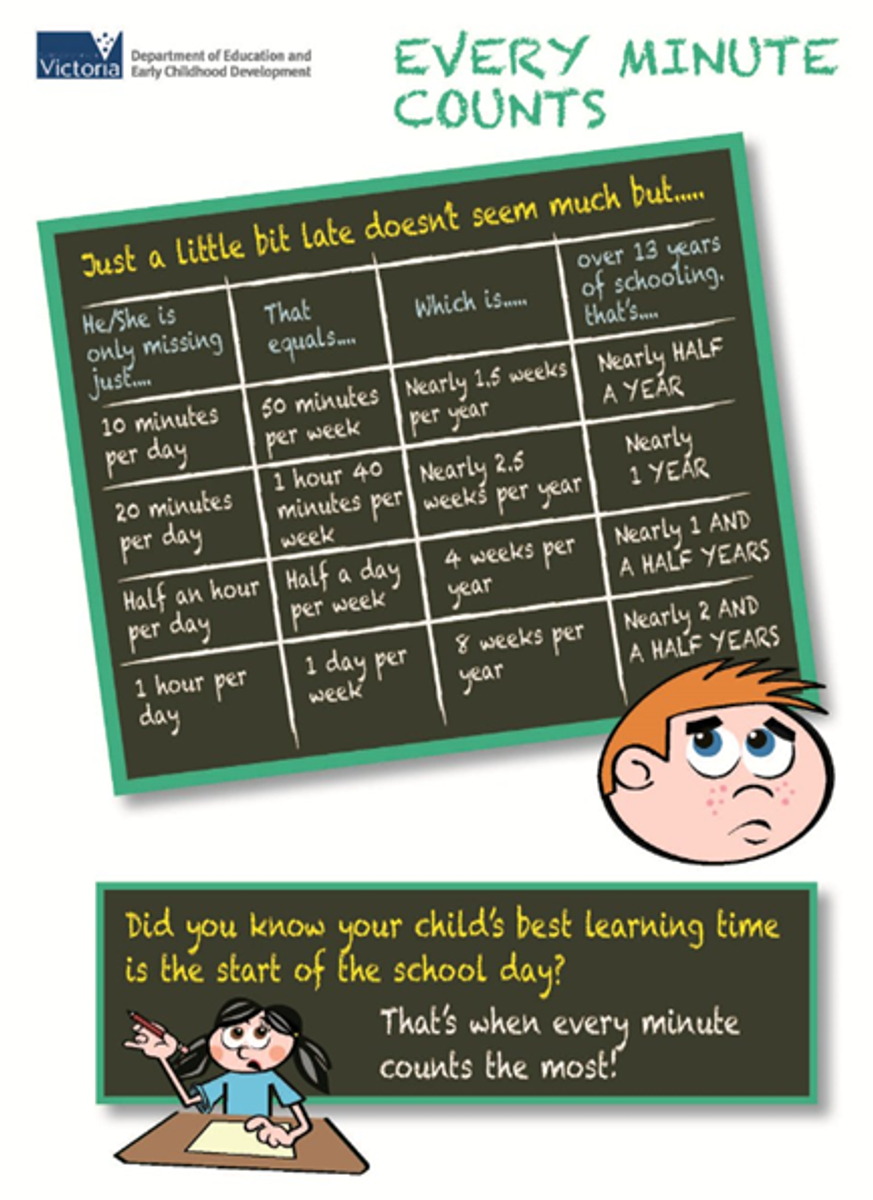 Victoria
Department of Education and
Early Childhood Development
EVERY MINUTE
COUNTS
Just a little bit late doesn't seem much but.....
He/She is
only missing
just....
That
equals....
Which is.....
over 13 years
of schooling.
that's....
10 minutes
per day
50 minutes
per week
Nearly 1.5 weeks
per year
Nearly HALF
A YEAR
20 minutes
per day
1 hour 40
minutes per
week
Nearly 2.5
weeks per year
Nearly
1 YEAR
Half an hour
per day
Half a day
per week
4 weeks per
year
Nearly 1 AND
A HALF YEARS
1 hour per
day
1 day per
week
8 weeks per
year
Nearly 2 AND
A HALF YEARS
Did you know your child's best learning time
is the start of the school day?
That's when every minute
counts the most!